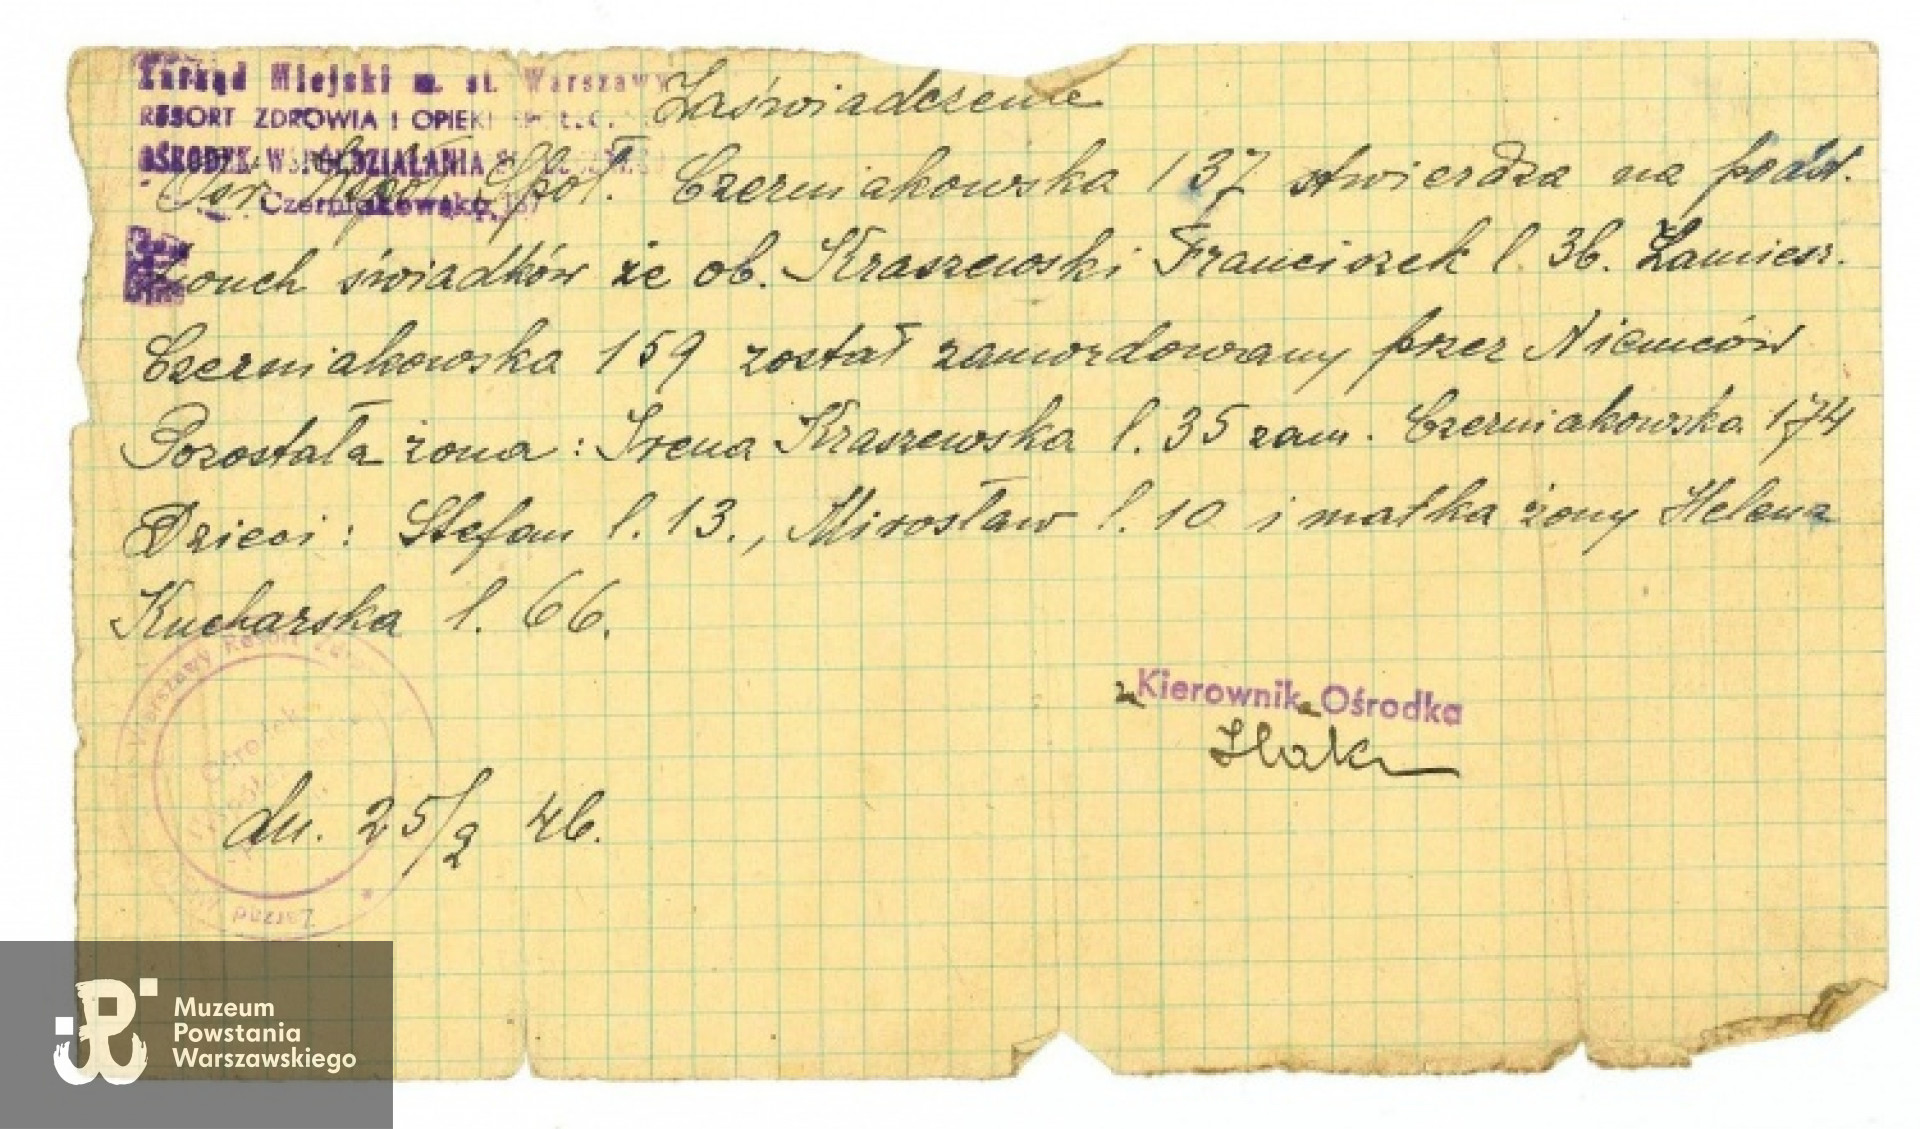 Zarząd Miejski m. st. Warszawy
RESORT ZDROWIA I OPIEKI
OŚRODEK WSPÓŁDZIAŁANIA
Czerniakowska 137
Zaświadczenie
Ośr. Współ. Społ. Czerniakowska 137 stwierdza na podst.
świadków że ob. Kraszewski Franciszek l. 36. Zamiesz.
Czerniakowska 159 został zamordowany przez Niemców
Pozostała żona: Irena Kraszewska l. 35 zam. Czerniakowska 174
Dzieci: Stefan l. 13., Mirosław l. 10 i matka żony Helena
Kucharska l. 66.
za Kierownika Ośrodka
dn. 25/2 46.
Warszawy Resort Zdr
Ośrodek
Zarząd
Muzeum
Powstania
Warszawskiego